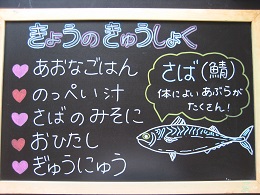 きょうの きゅうしょく
あおなごはん
のっぺい汁
さばのみそに
おひたし
ぎゅうにゅう
さば(鯖)
体によいあぶらが
たくさん!